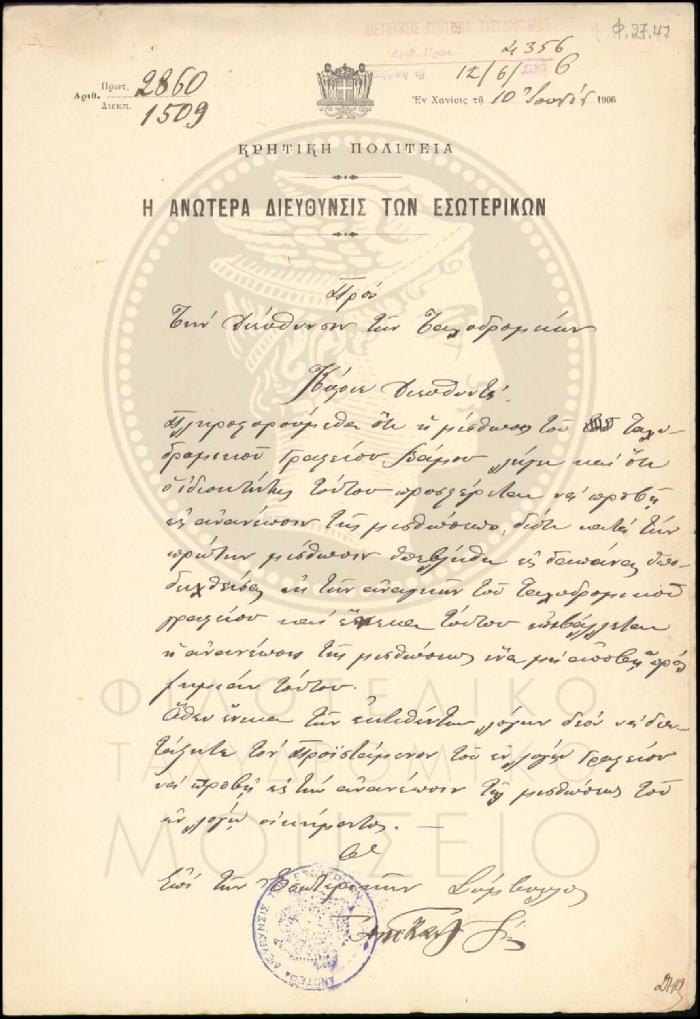 ΔΙΕΥΘΥΝΣΙΣ ΚΡΗΤΙΚΩΝ ΤΑΧΥΔΡΟΜΕΙΩΝ
Φ.27.47
Αριθ. Πρωτ. 4356
12/6/06
Αριθ. Πρωτ. 2860
Διεκπ. 1509
Ἐν Χανίοις τῇ 10 Ἰουνίου 1906
ΚΡΗΤΙΚΗ ΠΟΛΙΤΕΙΑ
Η ΑΝΩΤΕΡΑ ΔΙΕΥΘΥΝΣΙΣ ΤΩΝ ΕΣΩΤΕΡΙΚΩΝ
Πρὸς
Τὴν Διεύθυνσιν τῶν Ταχυδρομείων
Κύριε Διευθυντά
Πληροφορούμεθα ὅτι ἡ μίσθωσις τοῦ Ταχυ-
δρομικοῦ Γραφείου Βάμου λήγει καὶ ὅτι
ὁ ἰδιοκτήτης τούτου προσφέρεται νὰ προβῇ
εἰς ἀνανέωσιν τῆς μισθώσεως, διότι κατὰ τὴν
πρώτην μίσθωσιν ὑπεβλήθη εἰς δαπάνας
τὴν τοῦ ταχυδρομικοῦ
γραφείου καὶ ἕνεκα τούτου ἐπιβάλλεται
ἡ ἀνανέωσις τῆς μισθώσεως ἵνα μὴ ἀποβῇ πρὸς
ζημίαν τούτου.
Ὅθεν ἕνεκα τῶν ἐκτεθέντων λόγων δέον νὰ δια-
τάξητε τὸν Προϊστάμενον τοῦ ἐν λόγῳ Γραφείου
νὰ προβῇ εἰς τὴν ἀνανέωσιν τῆς μισθώσεως τοῦ
ἐν λόγῳ οἰκήματος. —
Ὁ
Ἐπὶ τῶν Ἐσωτερικῶν Σύμβουλος
ΑΝΩΤΕΡΑ ΔΙΕΥΘΥΝΣΙΣ ΤΩΝ ΕΣΩΤΕΡΙΚΩΝ
ΦΙΛΟΤΕΛΙΚΟ
ΤΑΧΥΔΡΟΜΙΚΟ
ΜΟΥΣΕΙΟ